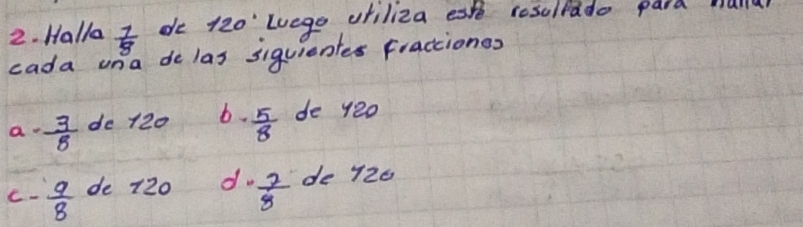 2. Halla 1/8 de 120. Luego utiliza este resultado para hallar
cada una de las siguientes fracciones
a- 3/8 de 120 b. 5/8 de 120
c- 9/8 de 120 d. 7/8 de 120